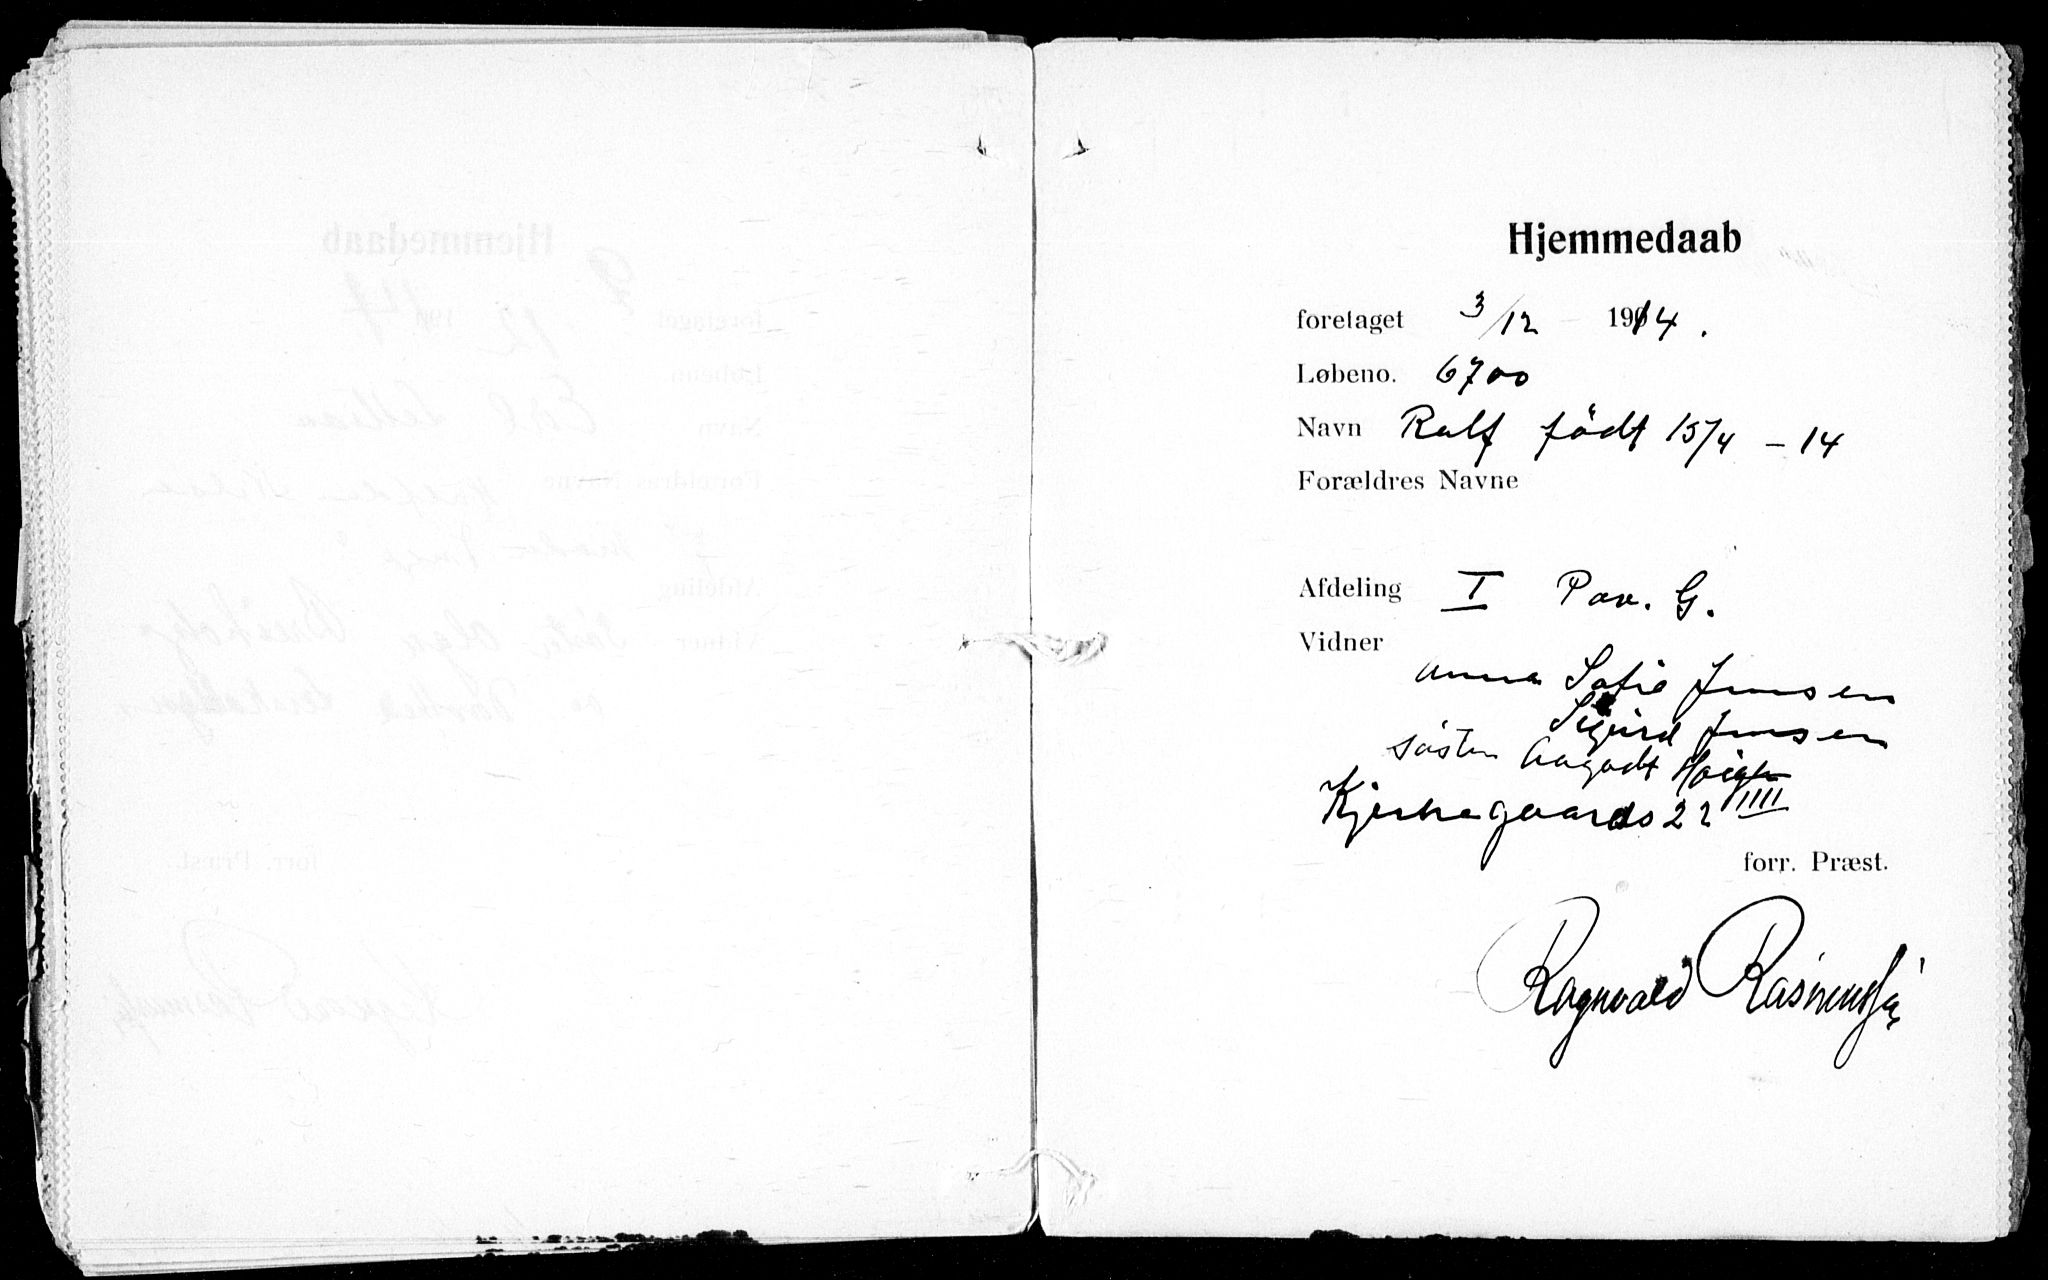 Hjemmedaab
foretaget 3/12 - 1914.
Løbeno. 6700
Navn Ralf født 15/4 - 14
Forældres Navne
Afdeling I Pav. G.
Vidner
Anna Sofie Jensen
Sigurd Jensen
søster Aagodt
Kjerkegaards 22 IIII
forr. Præst.
Ragnvald Rasmussen